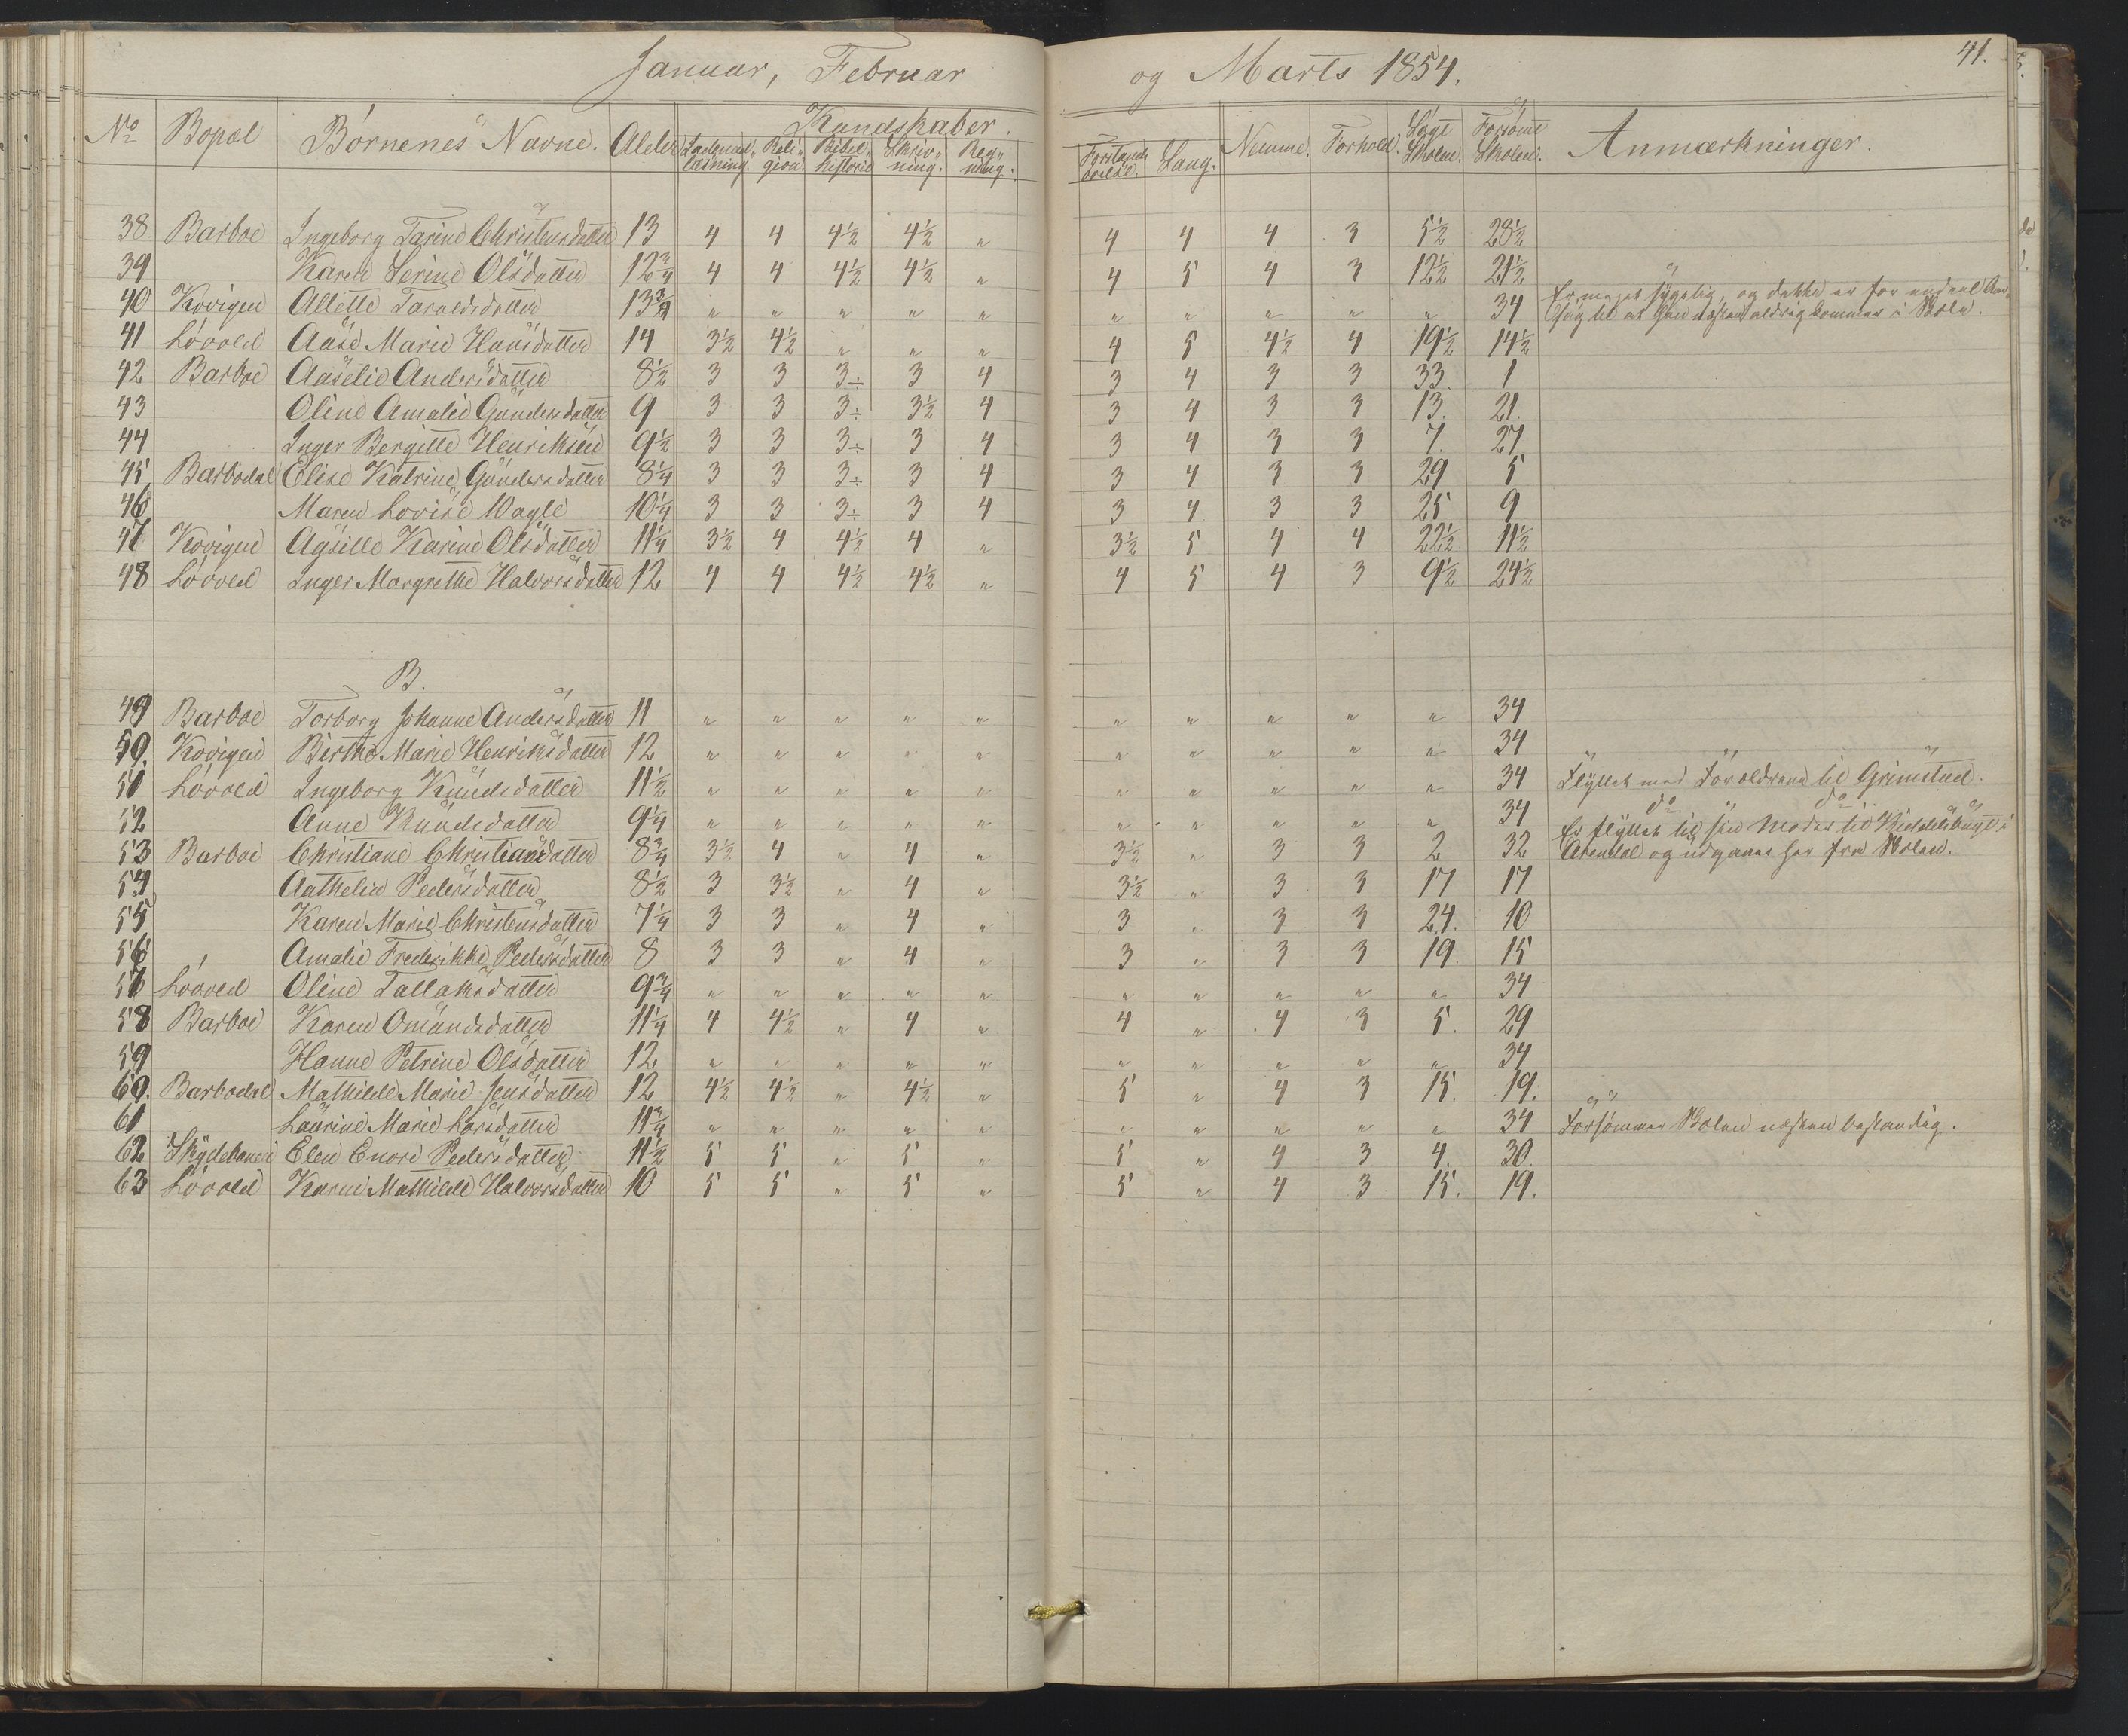 Januar, Februar og Marts 1854. 41.
No Bopæl Børnenes Navne. Alder Kundskaber. Nemme. Forhold. Søgt Skolen. Forsømt Skolen. Anmærkninger.
Indenadlæsning. Religion. Bibelhistorie Skrivning. Regning. Forstandsøvelse. Sang.
38 Barboe Ingeborg Tarine Christensdatter 13 4 4 4½ 4½ " 4 4 4 3 5½ 28½
39 Karen Serine Olsdatter 12¾ 4 4 4½ 4½ " 4 5 4 3 12½ 21½
40 Kovigen Allette Taraldsdatter 13¾ " " " " " " " " " " 34 Er meget sygelig, og dette er for endeel Aarsag til at hun næsten aldrig kommer i Skole.
41 Løvold Aase Marie Hansdatter 14 3½ 4½ " " " 4 5 4½ 4 19½ 14½
42 Barboe Aaselie Andersdatter 8½ 3 3 3÷ 3 4 3 4 3 3 33. 1
43 Oline Amalie Gundersdatter 9 3 3 3÷ 3½ 4 3 4 3 3 13. 21.
44 Inger Bergitte Henriksen 9½ 3 3 3÷ 3 4 3 4 3 3 7. 27.
45 Barbodal Elise Katrine Gundersdatter 8¼ 3 3 3÷ 3 4 3 4 3 3 29 5
46 Maren Lovise Wagle 10¼ 3 3 3÷ 3 4 3 4 3 3 25 9
47 Kovigen Agsille Karine Olsdatter 11¼ 3½ 4 4½ 4 " 3½ 5 4 4 22½ 11½
48 Løvold Inger Margrethe Halvorsdatter 12 4 4 4½ 4½ " 4 5 4 3 9½ 24½
B.
49 Barboe Torborg Johanne Andersdatter 11 " " " " " " " " " " 34
50. Kovigen Birthe Marie Henriksdatter 12 " " " " " " " " " " 34
51 Løvold Ingeborg Knudsdatter 11½ " " " " " " " " " " 34 Flyttet med Forældrene til Grimstad.
52 Anne Knudsdatter 9¼ " " " " " " " " " " 34 do do
53 Barboe Christiane Christiansdatter 8¾ 3½ 4 " 4 " 3½ " 3 3 2 32 Er flyttet til sin Moder til i Arendal og udganet her fra Skolen.
54 Aathelia Pedersdatter 8½ 3 3½ " 4 " 3½ " 3 3 17 17
55 Karen Marie Christensdatter 7¼ 3 3 " 4 " 3 " 3 3 24. 10
56 Amalie Frederikke Pedersdatter 8 3 3 " 4 " 3 " 3 3 19. 15
57 Løvold Oline Tallaksdatter 9¾ " " " " " " " " " " 34
58 Barboe Karen Omundsdatter 11¼ 4 4½ " 4 " 4 " 4 3 5. 29
59 Hanne Petrine Olsdatter 12. " " " " " " " " " " 34
60. Barbodal Mathilde Marie Jensdatter 12 4½ 4½ " 4½ " 5 " 4 3 15. 19.
61 Laurine Marie Larsdatter 11¾ " " " " " " " " " " 34 Forsømmer Skolen næsten bestandig.
62 Elen Enore Pedersdatter 11½ 5 5 " 5 " 5 " 4 3 4. 30.
63 Løvold Karen Mathilde Halvorsdatter 10 5 5 " 5 " 5 " 4 3 15. 19.